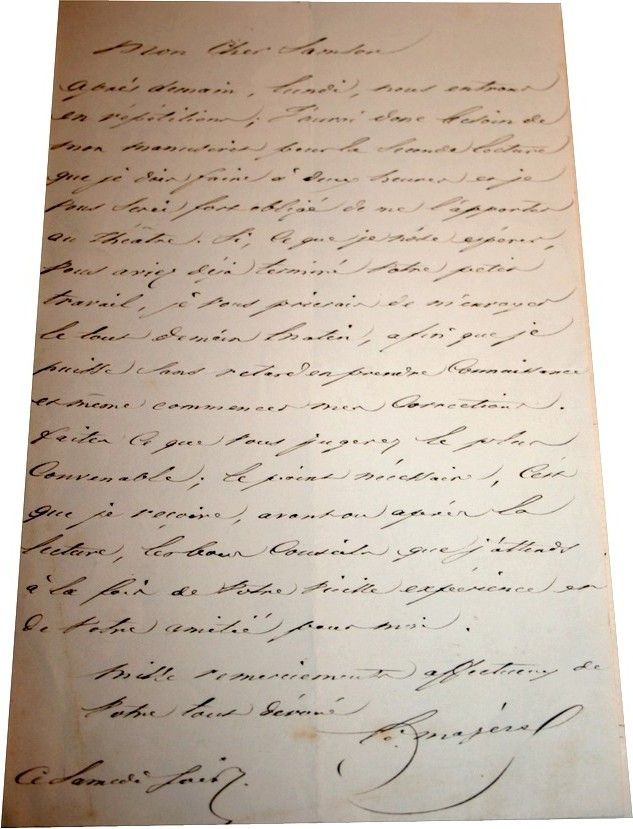 Mon Cher Samson
après demain, lundi, nous entrons
en répétitions; J'aurai donc besoin de
mon manuscrit pour la Seconde lecture
que je dois faire à deux heures et je
vous serai fort obligé de me l'apporter
au théâtre. Si, ce que je n'ôse espérer,
vous aviez déjà terminé votre petit
travail, je vous prierais de m'envoyer
le tout demain matin, afin que je
puisse sans retard en prendre Connaissance
et même commencer mes Corrections.
faites ce que vous jugerez le plus
Convenable; le point nécessaire, C'est
que je reçoive, avant ou après la
lecture, les bons Conseils que j'attends
à la fois de votre vieille expérience et
de votre amitié pour moi.
mille remerciements affectueux de
votre tout dévoué
Ce Samedi soir.